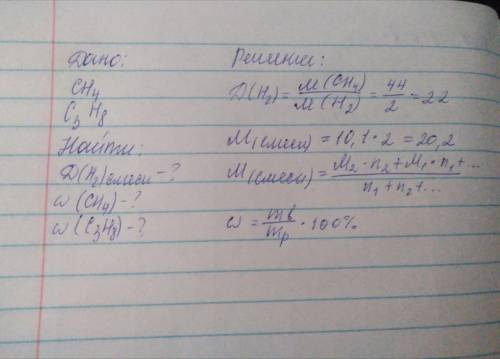 Дано:
CH4
C3H8
Найти:
D(H2)смеси - ?
ω(CH4) - ?
ω(C3H8) - ?
Решение:
D(H2) = M(CH4)/M(H2) = 44/2 = 22
M(смеси) = 10,1 • 2 = 20,2
M(смеси) = M2 • n2 + M1 • n1 + .../n1 + n2 + ...
ω = mв/mр • 100%